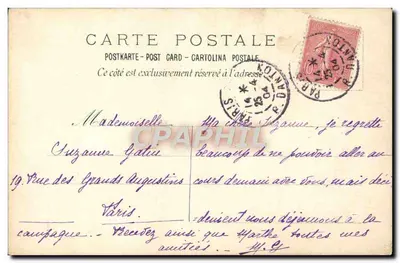 CARTE POSTALE
POSTKARTE - POST CARD - CARTOLINA POSTALE
Ce côté est exclusivement réservé à l'adresse
PARIS
R. DANTON
14 * 4
25
04
PARIS
R. DANTON
14 * 4
25
04
CPARAMA
Mademoiselle
Suzanne Gatine
19, Rue des Grands Augustins
Paris.
Ma chère Suzanne, je regrette
beaucoup de ne pouvoir aller au
cours demain avec vous, mais déci
dement nous déjeunons à la
campagne. Recevez ainsi que Marthe toutes mes
amitiés.